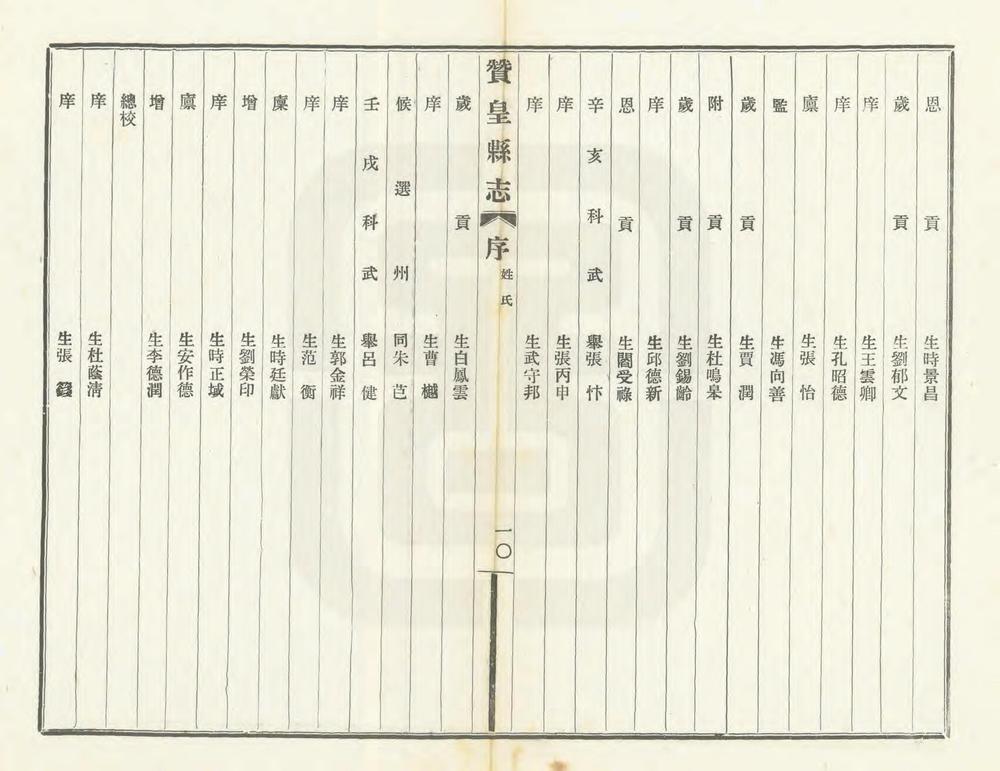 恩貢生時景昌
歲貢生劉郁文
庠生王雲卿
庠生孔昭德
廩生張怡
監生馮向善
歲貢生賈潤
附貢生杜鳴皋
歲貢生劉錫齡
庠生邱德新
恩貢生閻受祿
辛亥科武舉張忭
庠生張丙申
庠生武守邦
贊皇縣志 序 姓氏 一〇
歲貢生白鳳雲
庠生曹樾
候選州同朱芑
壬戌科武舉呂健
庠生郭金祥
庠生范衡
廩生時廷獻
增生劉榮印
庠生時正域
廩生安作德
增生李德潤
總校
庠生杜蔭清
庠生張